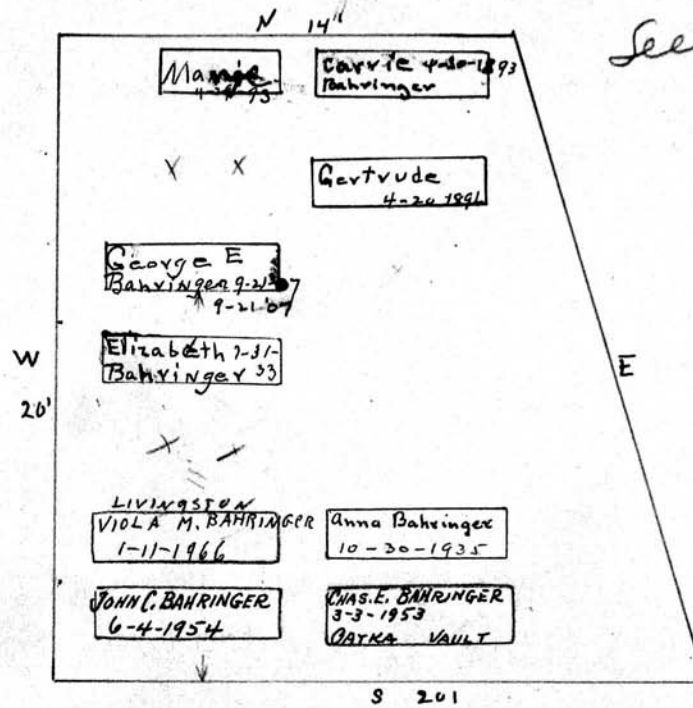 N 14"
See
Mamie
Carrie 4-30-1893
Bahringer
Gertrude
4-20 1891
George E
Bahringer 9-21-07
9-21'07
Elizabeth 7-31-
Bahringer 33
W
20'
E
LIVINGSTON
VIOLA M. BAHRINGER
1-11-1966
Anna Bahringer
10-30-1935
JOHN C. BAHRINGER
6-4-1954
CHAS. E. BAHRINGER
3-3-1953
OATKA VAULT
S 201